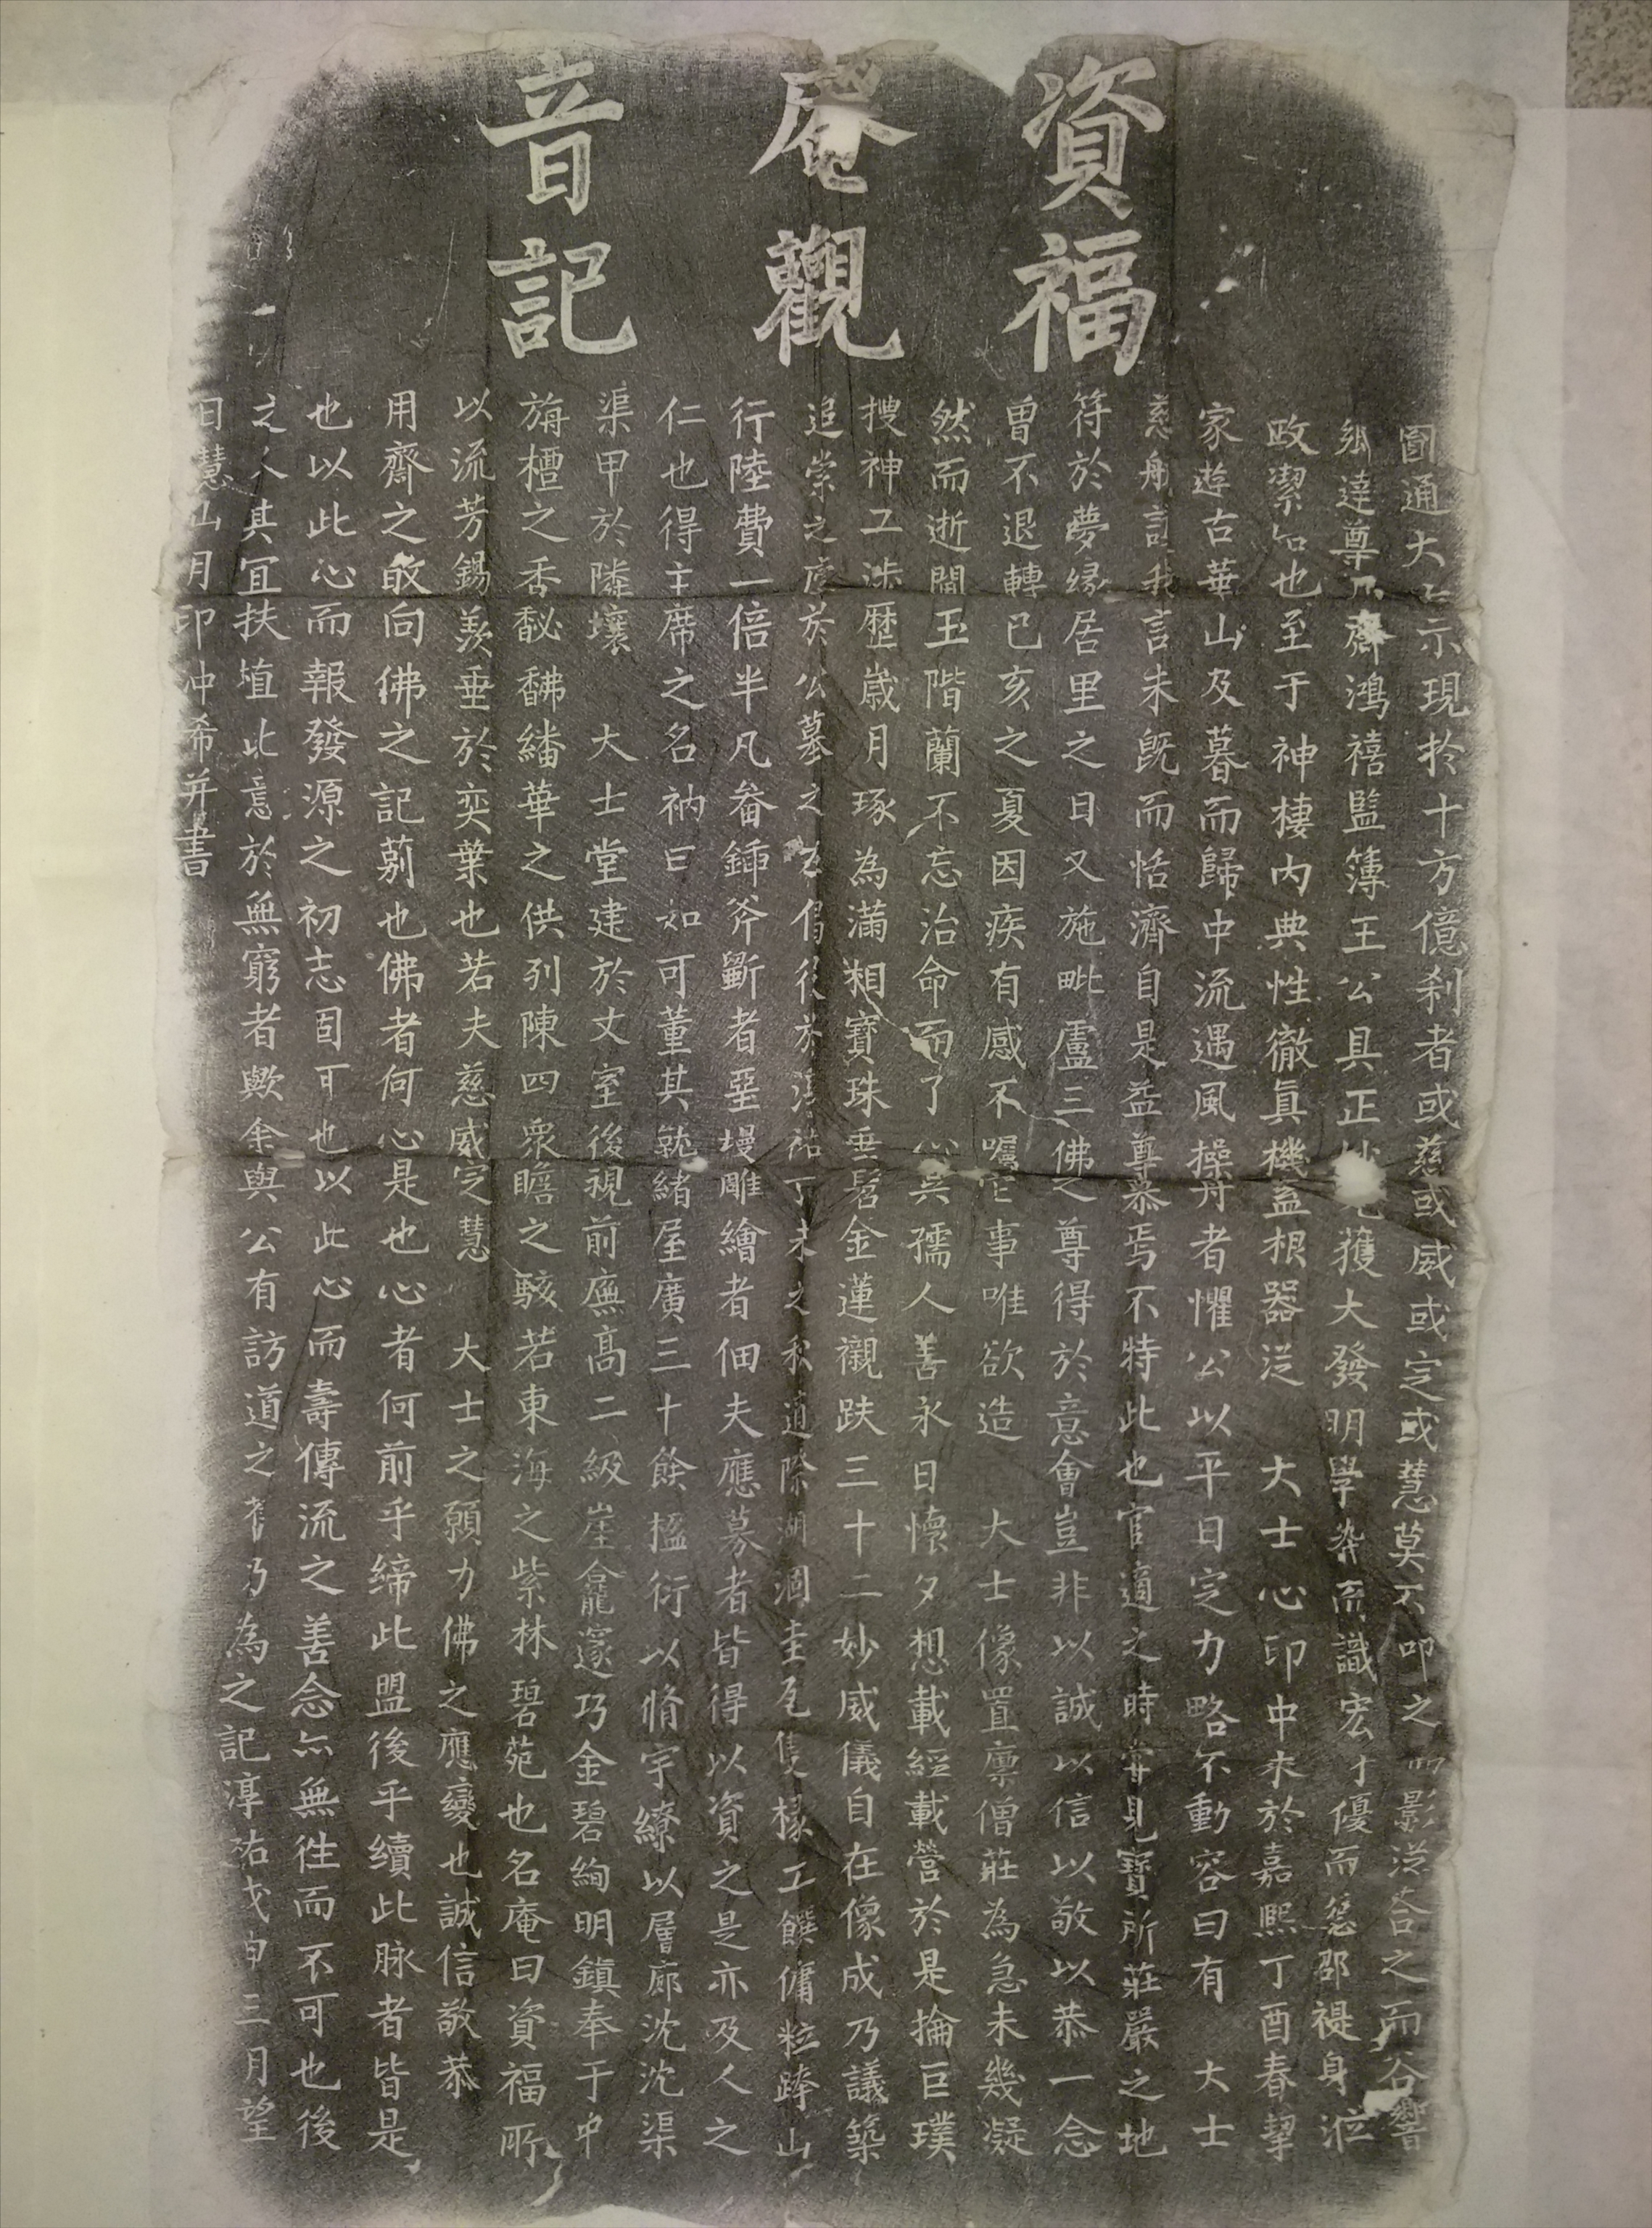 資福
庵觀
音記
圓通大士示現於十方億刹者或慈或威或定或慧莫不叩之而影從杳之而谷響
達尊齋鴻禧監簿王公具正獲大發明學粹而識宏才優而德邵禔身涖
政潔如也至于神棲內典性徹眞機蓋根器從 大士心印中來於嘉熙丁酉春挈
家遊古華山及暮而歸中流遇風操舟者懼公以平日定力略不動容曰有 大士
慈航訂我言未旣而恬濟自是益尊慕焉不特此也官適之時甞見寶所莊嚴之地
符於夢緣居里之日又施毗盧三佛之尊得於意會豈非以誠以信以敬以恭一念
曾不退轉已亥之夏因疾有感不囑它事唯欲造 大士像置廪僧莊為急未幾凝
然而逝闔玉階蘭不忘治命而了心吳孺人善永日懷夕想載經載營於是掄巨璞
搜神工涉歷歲月琢為滿相寶珠垂髫金蓮襯趺三十二妙威儀自在像成乃議築
追崇之庵於公墓之右僝役於淳祐丁未之秋適際湖涸圭瓦隻椽工饌傭粒踔山
行陸費一倍半凡畚鍤斧斵者堊墁雕繪者佃夫應募者皆得以資之是亦及人之
仁也得主席之名衲曰如可董其就緒屋廣三十餘楹衍以脩宇繚以層廊沈沈渠
渠甲於隣壤 大士堂建於丈室後視前廡髙二級崖龕邃巧金碧絢明鎮奉于中
旃檀之香馝馞繙華之供列陳四衆瞻之駭若東海之紫林碧苑也名庵曰資福所
以流芳錫羨垂於奕葉也若夫慈威定慧 大士之願力佛之應變也誠信敬恭
用齋之敢向佛之記莂也佛者何心是也心者何前乎締此盟後乎續此脉者皆是
也以此心而報發源之初志固可也以此心而壽傳流之善念亦無徃而不可也後
之人其冝扶埴此意於無窮者歟余與公有訪道之舊乃為之記淳祐戊申三月望
日慧山月印沖希并書